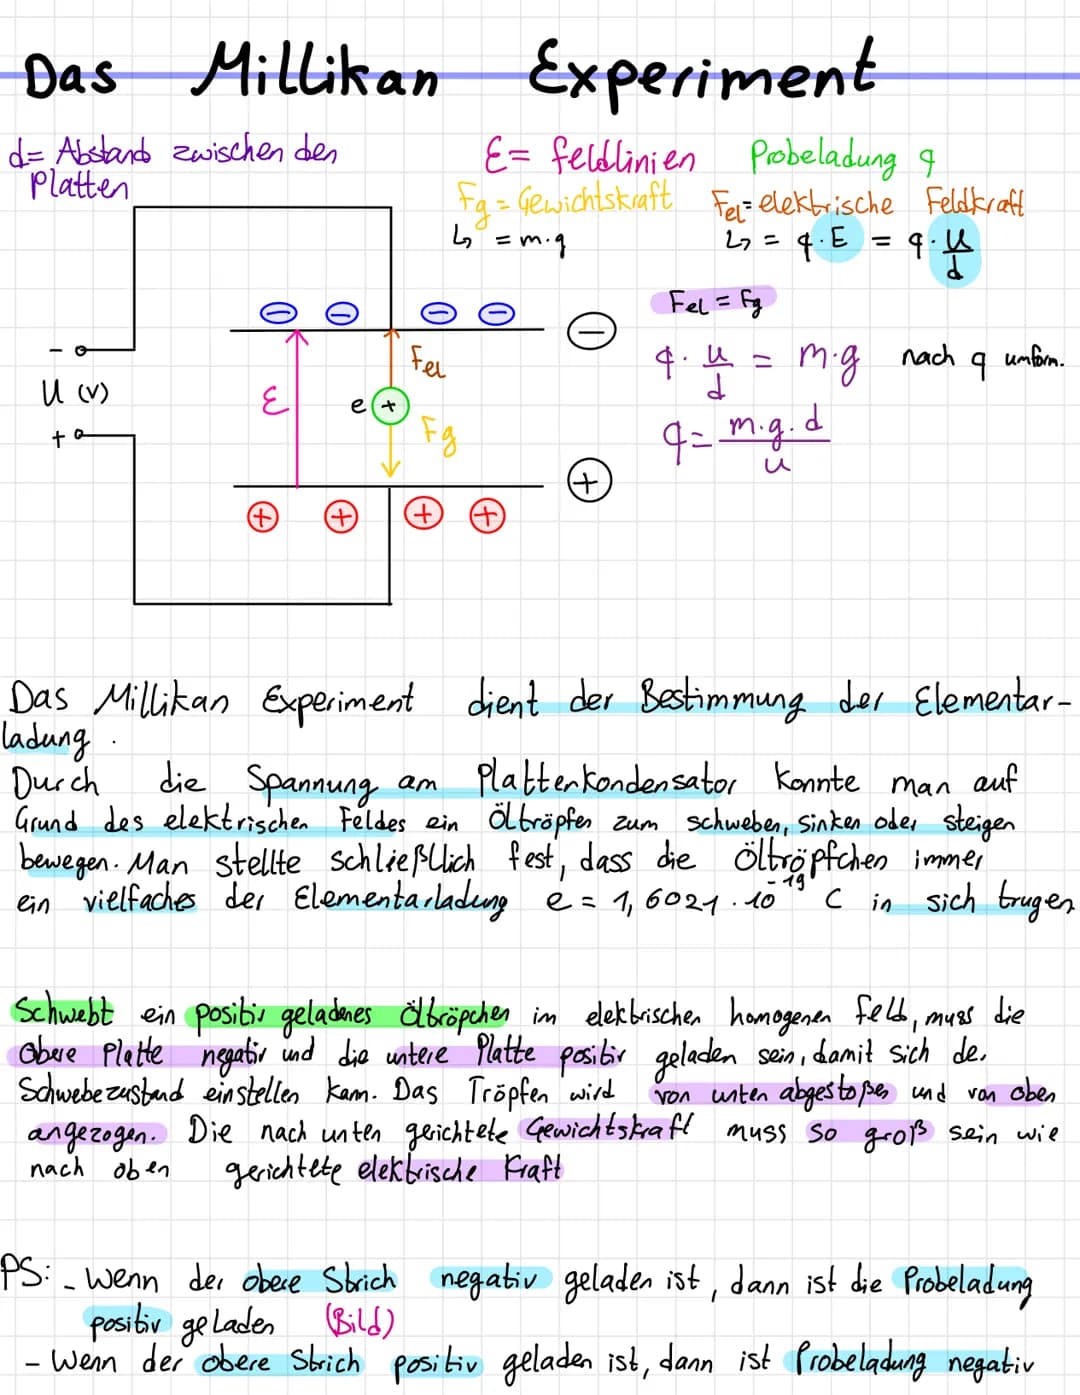 Das Millikan Experiment
d= Abstand zwischen den
Platten
E= feldlinien
Probeladung q
Fg = Gewichtskraft
↳ = m·g
Fel= elektrische Feldkraft
↳ = q·E = q·U/d
Fel = Fg
q·U/d = m·g nach q umform.
q= m·g·d/U
-
U (V)
+
Fel
E
e +
Fg
Das Millikan Experiment dient der Bestimmung der Elementar-
ladung.
Durch die Spannung am Plattenkondensator konnte man auf
Grund des elektrischen Feldes ein Öltröpfen zum schweben, sinken oder steigen
bewegen. Man stellte schließlich fest, dass die Öltröpfchen immer
ein vielfaches der Elementarladung e = 1,6021·10⁻¹⁹ C in sich trugen
Schwebt ein positiv geladenes Öltröpchen im elektrischen homogenen feld, muss die
Obere Platte negativ und die untere Platte positiv geladen sein, damit sich der
Schwebezustand einstellen kam. Das Tröpfen wird von unten abgestoßen und von oben
angezogen. Die nach unten gerichtete Gewichtskraft muss so groß sein wie
nach oben gerichtete elektrische Kraft
PS: - Wenn der obere Strich negativ geladen ist, dann ist die Probeladung
positiv geladen (Bild)
- Wenn der obere Strich positiv geladen ist, dann ist Probeladung negativ